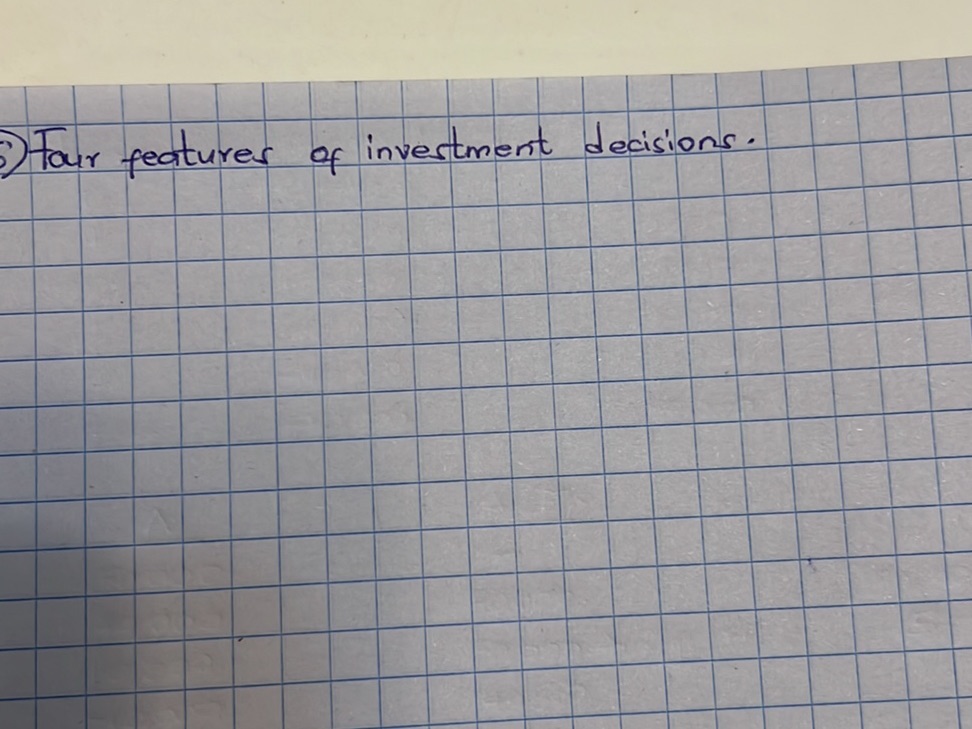 5) Four features of investment decisions.